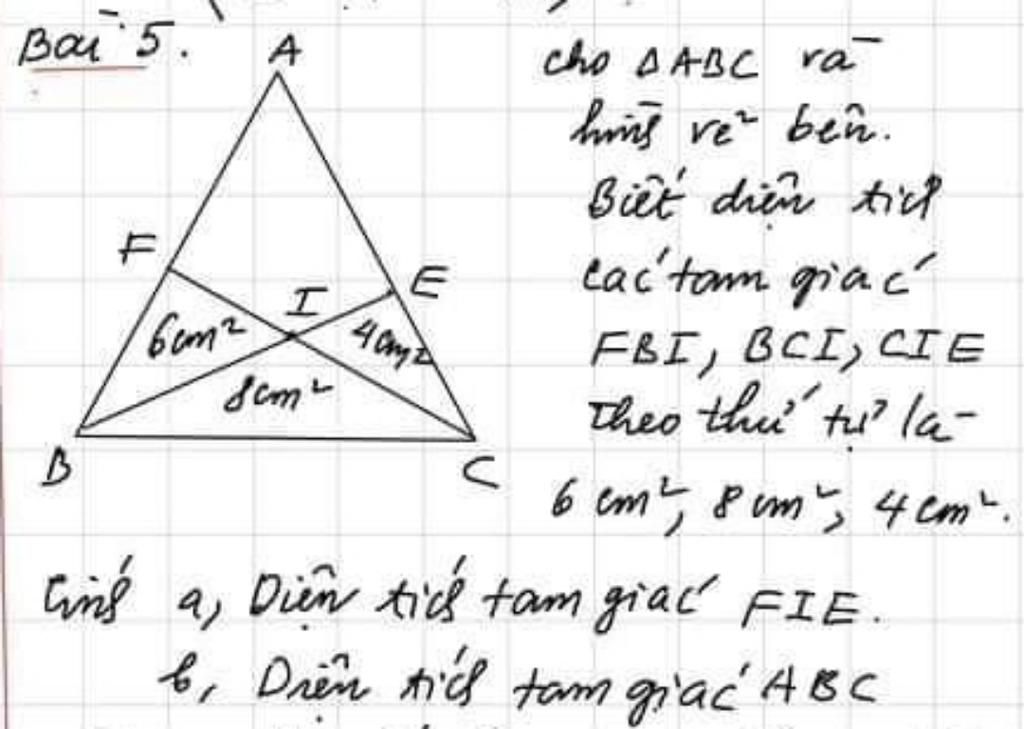 Bài 5.
A
F
E
I
6cm²
4cm²
8cm²
B
C
cho ΔABC và
hình vẽ bên.
Biết diện tích
các tam giác
FBI, BCI, CIE
Theo thứ tự là
6 cm², 8 cm², 4 cm².
Tính a, Diện tích tam giác FIE.
b, Diện tích tam giác ABC